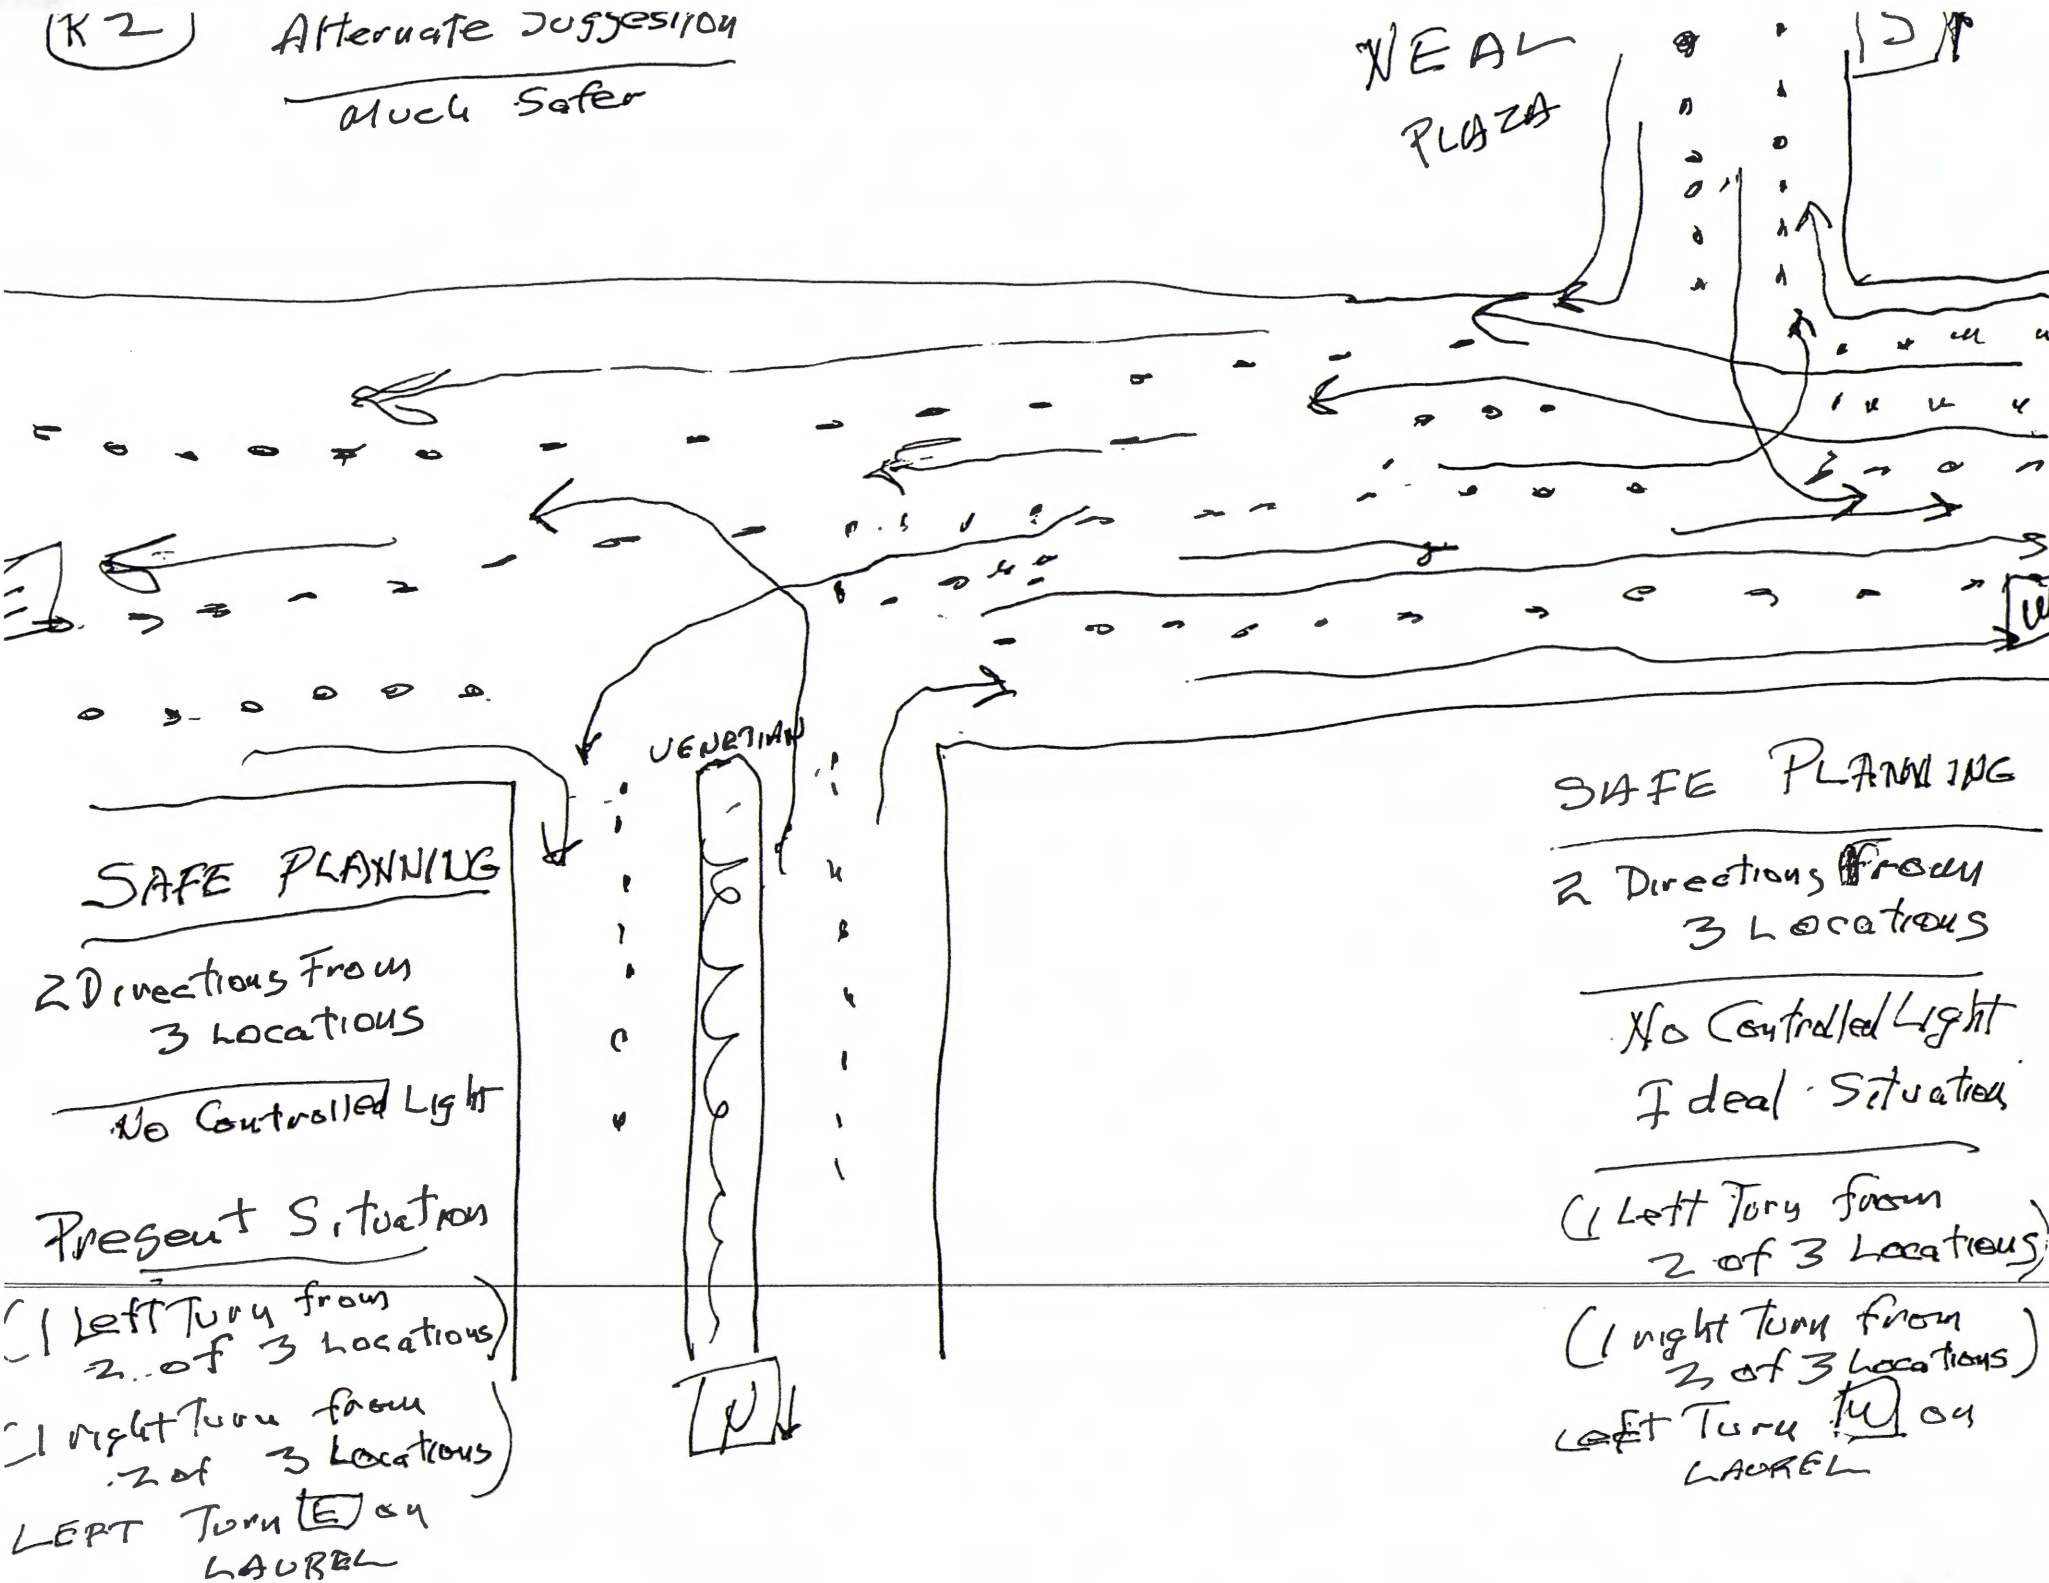 K2
Alternate Suggestion
Much Safer
NEAL
PLAZA
S
E
W
VENETIAN
SAFE PLANNING
2 Directions From
3 Locations
No Controlled Light
Present Situation
(1 Left Turn from
2 of 3 Locations)
(1 right Turn from
2 of 3 Locations)
LEFT Turn E on
LAUREL
N
SAFE PLANNING
2 Directions From
3 Locations
No Controlled Light
Ideal Situation
(1 Left Turn from
2 of 3 Locations)
(1 right Turn from
2 of 3 Locations)
Left Turn W on
LAUREL